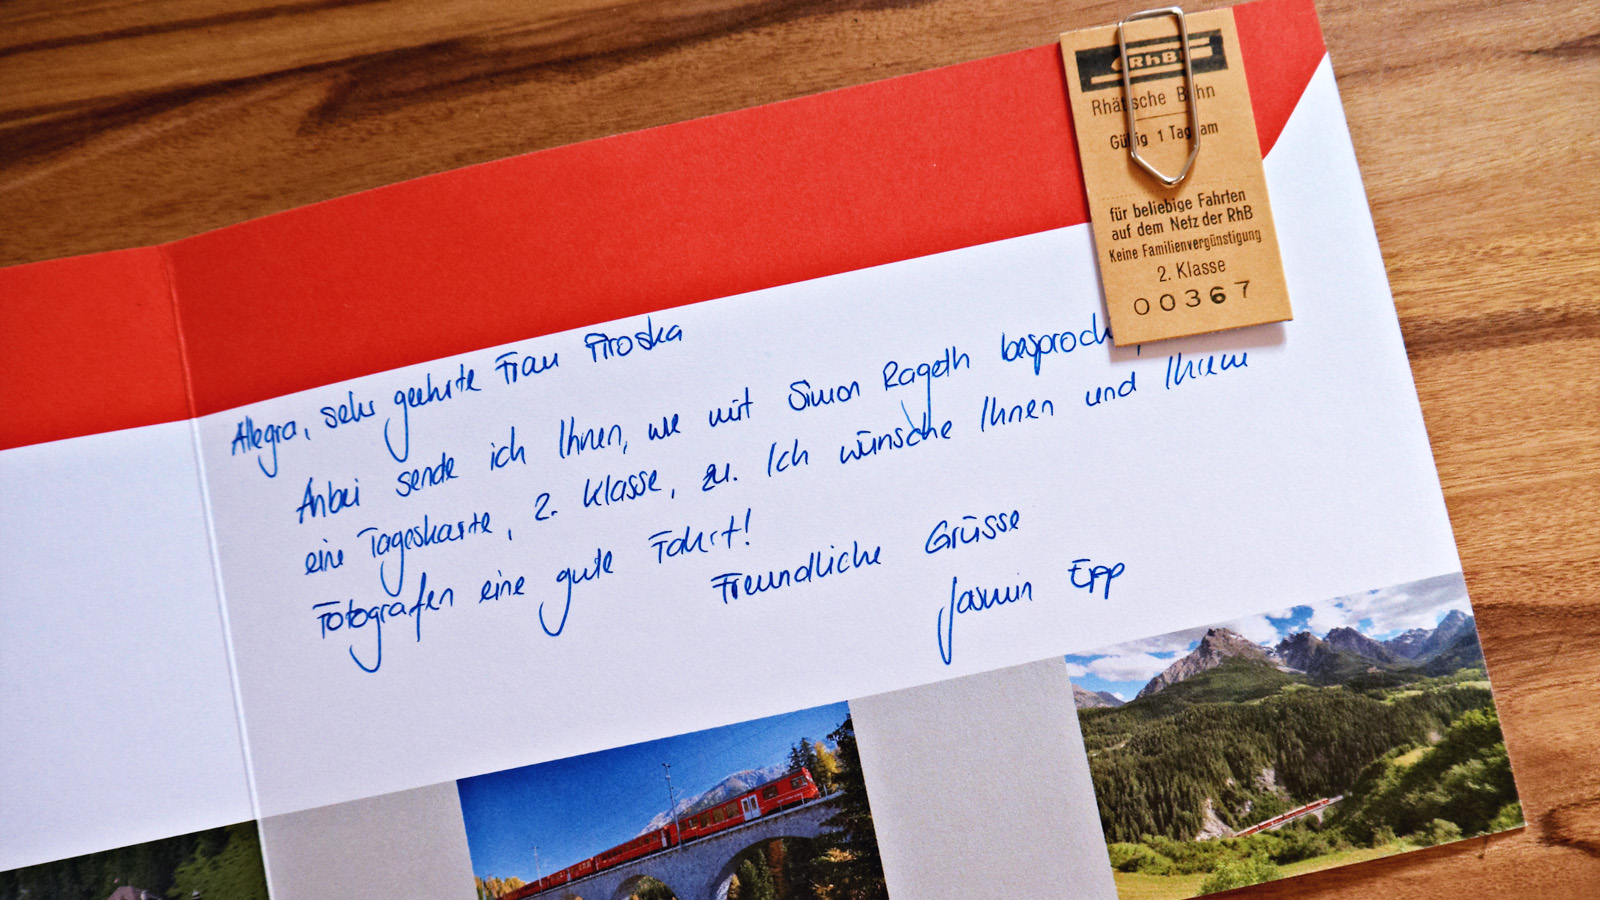 RhB
Rhätische Bahn
Gültig 1 Tag am
für beliebige Fahrten
auf dem Netz der RhB
Keine Familienvergünstigung
2. Klasse
00367
Allegra, sehr geehrte Frau Piroska
Anbei sende ich Ihnen, wie mit Simon Rageth besproch
eine Tageskarte, 2. Klasse, zu. Ich wünsche Ihnen und Ihrem
Fotografen eine gute Fahrt!
Freundliche Grüsse
Jasmin Epp